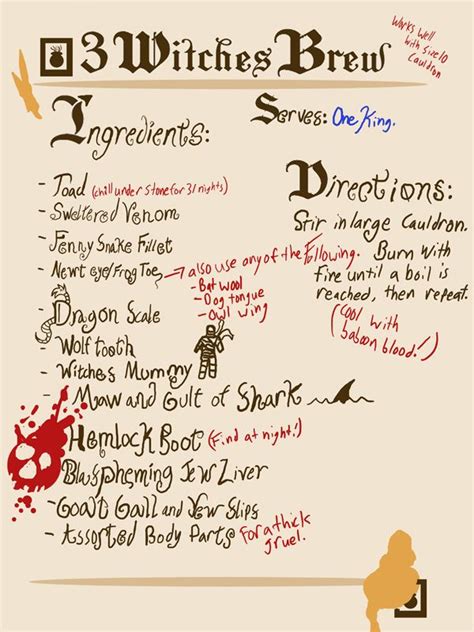 3 Witches Brew
Works well
with size 10
Cauldron
Serves: One King.
Ingredients:
- Toad (chill under stone for 31 nights)
- Sweltered Venom
- Fenny Snake Fillet
- Newt eye/Frog Toe → also use any of the following.
- Bat wool
- Dog tongue
- Owl wing
- Dragon Scale
- Wolf tooth
- Witches Mummy
- Maw and Gulf of Shark
- Hemlock Root (Find at night!)
- Blaspheming Jew Liver
- Goat Gall and Yew Slips
- Assorted Body Parts For a thick
gruel.
Directions:
Stir in large Cauldron.
Burn with
fire until a boil is
reached, then repeat.
(Cool with
baboon blood!)